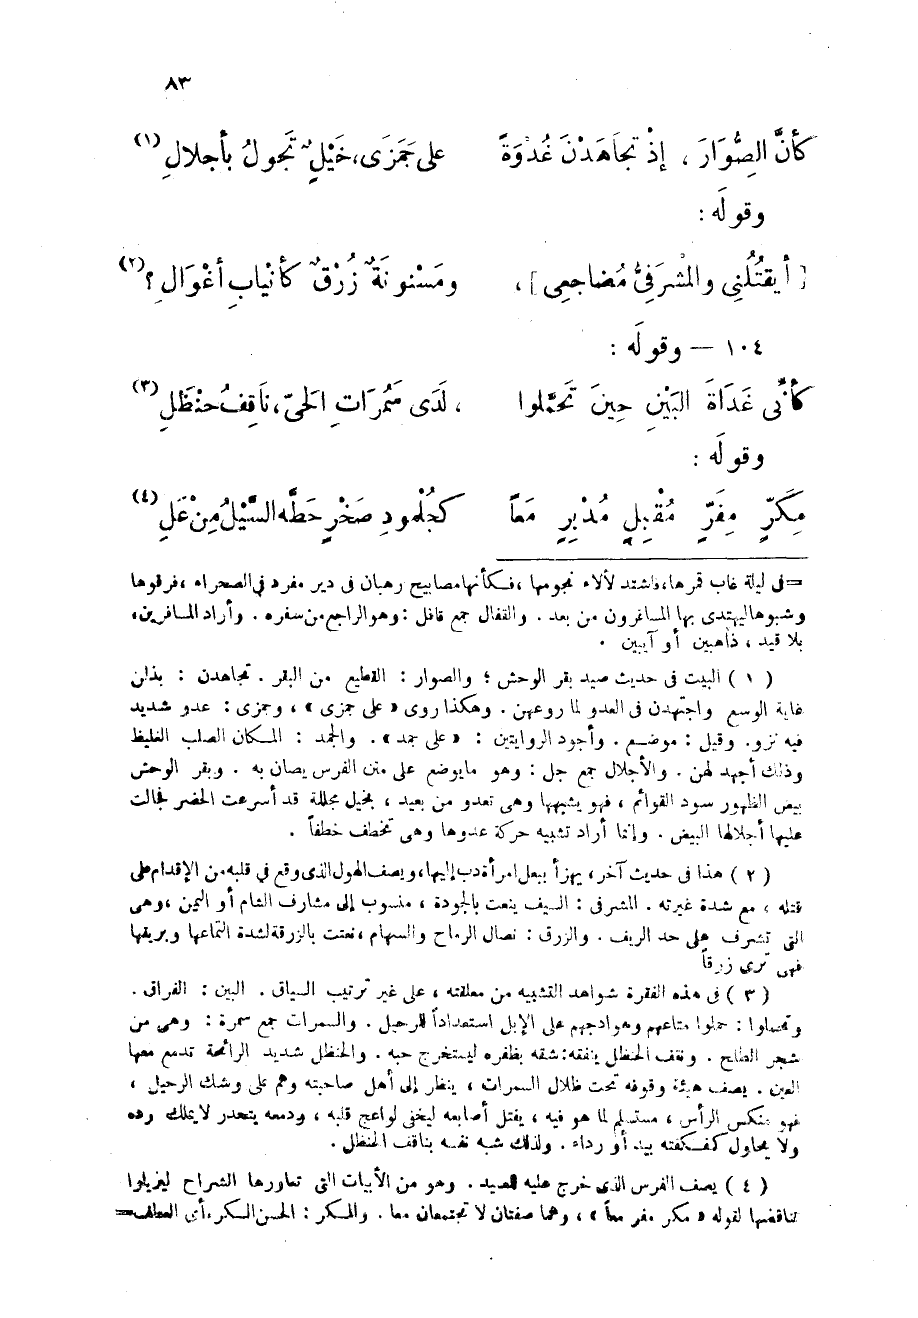 ٨٣
كأنَّ الصِّوَارَ ، إذْ تجاهَدْنَ غُدْوَةً على جَمَزَى، خَيْلٍ تجولُ بأجلالِ (١)
وقولَه :
[ أيقتُلُنِى والمَشْرَفِىُّ مُضاجعِى ] ، ومَسْنونَةٌ زُرْقٌ كأنْيابِ أغْوَالِ ؟ (٢)
١٠٤ — وقولَه :
كأنِّى غَدَاةَ البَيْنِ حِينَ تَحَمَّلوا ، لَدَى سَمُرَاتِ الحَىِّ ، نَاقِفُ حنْظَلِ (٣)
وقولَه :
مِكَرٍّ مِفَرٍّ مُقْبِلٍ مُدْبِرٍ مَعاً كجُلْمودِ صَخْرٍ حَطَّه السَّيْلُ مِنْ عَلِ (٤)
= فى ليلة غاب قمرها ، فاشتد لألاء نجومها ، فكأنها مصابيح رهبان فى دير مفرد فى الصحراء ، فرقوها
وشبوها ليهتدى بها المسافرون من بعد . والقفال جمع قافل : وهو الراجع من سفره . وأراد المسافرين ،
بلا قيد ، ذاهبين أو آيبين .
( ١ ) البيت فى حديث صيد بقر الوحش ؛ والصوار : القطيع من البقر . تجاهدن : بذلن
غاية الوسع واجتهدن فى العدو لما روعهن . وهكذا روى « على جمزى » ، وجمزى : عدو شديد
فيه نزو . وقيل : موضع . وأجود الروايتين : « على جمد » . والجمد : المكان الصلب الغليظ
وذلك أجهد لهن . والأجلال جمع جل : وهو ما يوضع على متن الفرس يصان به . وبقر الوحش
بيض الظهور سود القوائم ، فهو يشبهها وهى تعدو من بعيد ، بخيل مجللة قد أسرعت الحضر فجالت
عليها أجلالها البيض . وإنما أراد تشبيه حركة عدوها وهى تخطف خطفاً .
( ٢ ) هذا فى حديث آخر ، يهزأ ببعل امرأة دب إليها ، ويصف الهول الذى وقع فى قلبه من الإقدام على
قتله ، مع شدة غيرته . المشرفى : السيف ينعت بالجودة ، منسوب إلى مشارف الشام أو اليمن ، وهى
التى تشرف على حد الريف . والزرق : نصال الرماح والسهام ، نعتت بالزرقة لشدة التماعها وبريقها
فهى ترى زرقاً
( ٣ ) فى هذه الفقرة شواهد التشبيه من معلقته ، على غير ترتيب السياق . البين : الفراق .
وتحملوا : حملوا متاعهم وهوادجهم على الإبل استعداداً للرحيل . والسمرات جمع سمرة : وهى من
شجر الطلح . ونقف الحنظل ينقفه : شقه بظفره ليستخرج حبه . والحنظل شديد الرائحة تدمع معها
العين . يصف هيئة وقوفه تحت ظلال السمرات ، ينظر إلى أهل صاحبته وهم على وشك الرحيل ،
فهو منكس الرأس ، مستسلم لما هو فيه ، يفتل أصابعه ليخفى لواعج قلبه ، ودمعه يتحدر لا يملك رده
ولا يحاول كفكفته بيد أو رداء . ولذلك شبه نفسه بناقف الحنظل .
( ٤ ) يصف الفرس الذى خرج عليه للصيد . وهو من الأبيات التى تعاورها الشراح ليزيلوا
تناقضها لقوله « مكر مفر معاً » ، وهما صفتان لا تجتمعان معا . والمكر : الحسن الكر ، أى العطف =